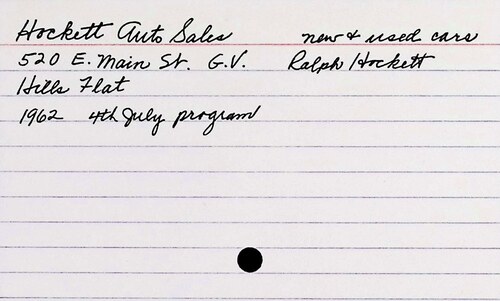 Hockett Auto Sales new & used cars
520 E. Main St. G.V. Ralph Hockett
Hills Flat
1962 4th July program